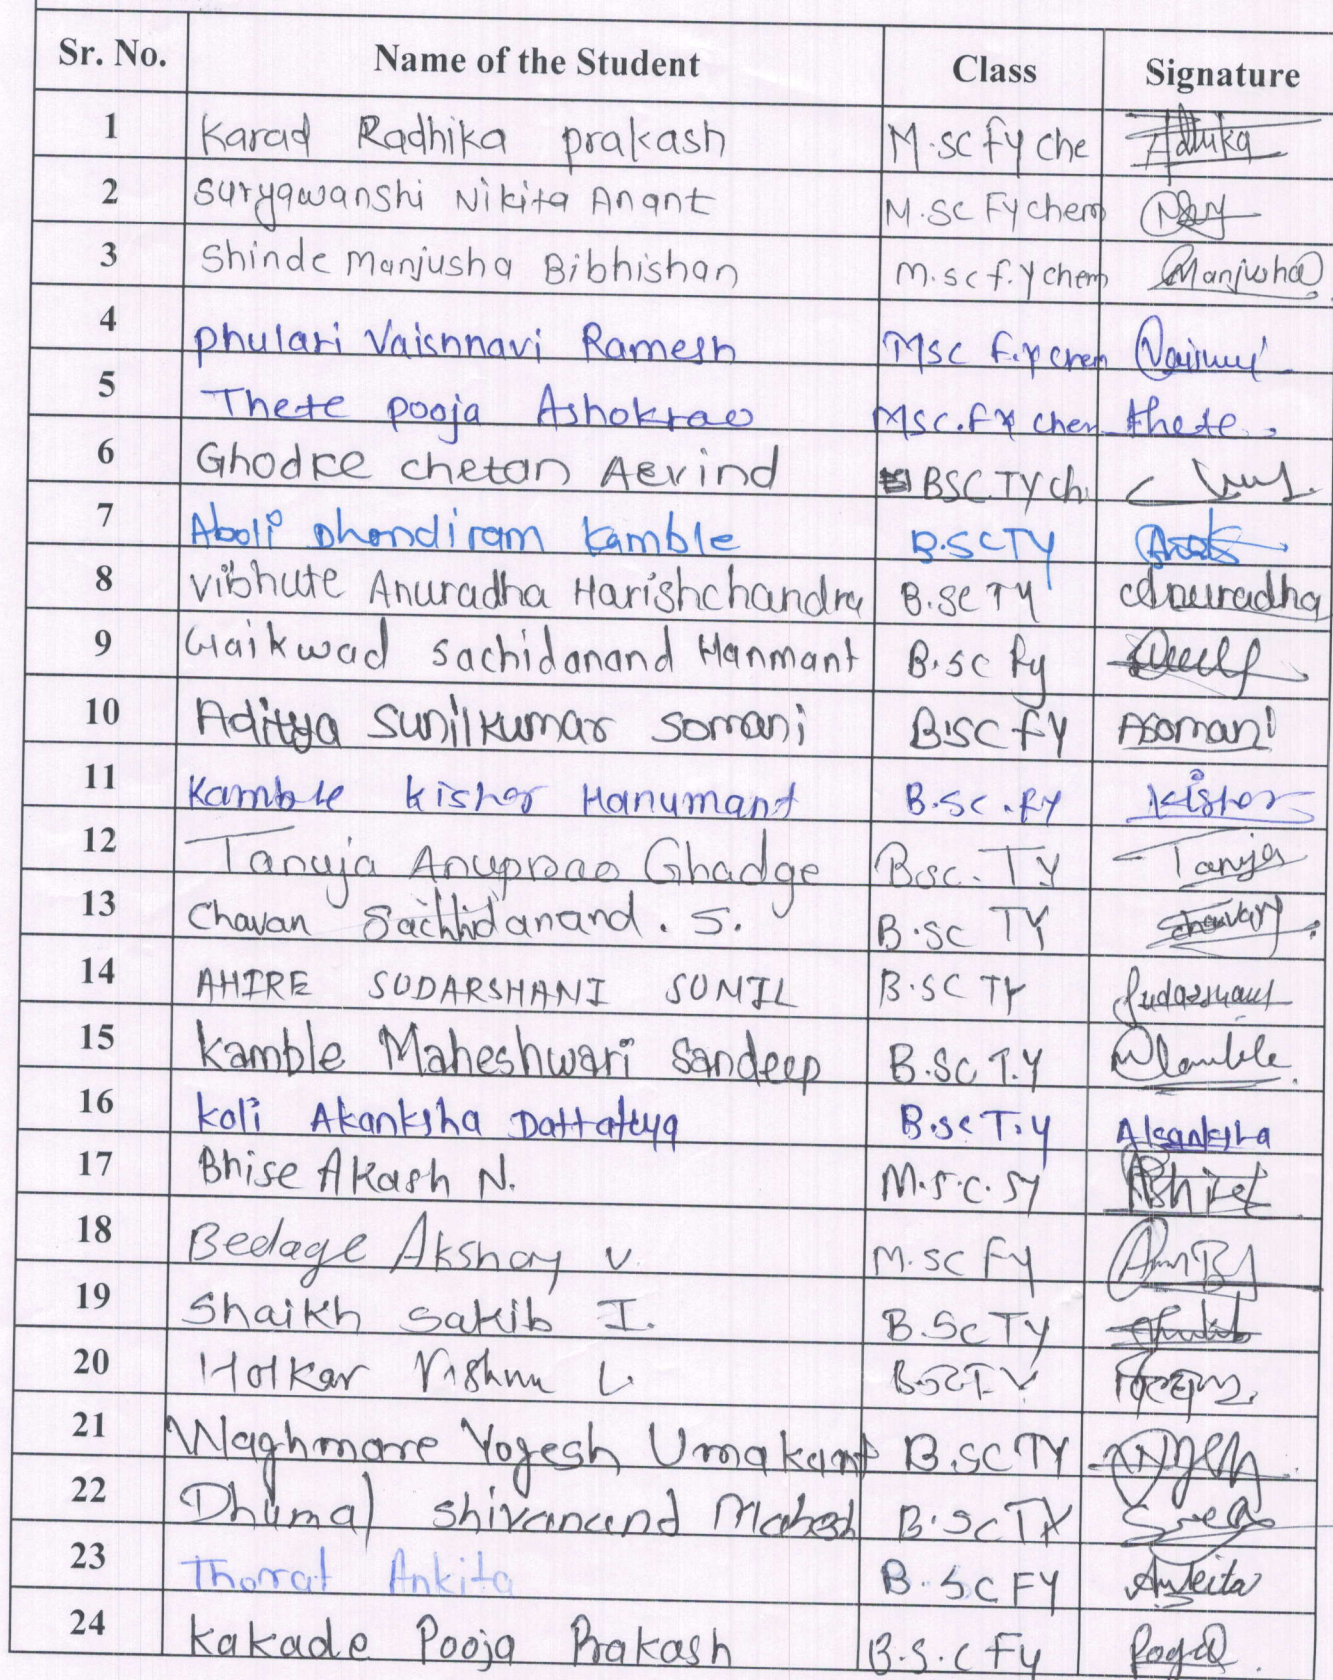 Sr. No. Name of the Student Class Signature
1 Karad Radhika prakash M.sc fy che
2 Suryawanshi Nikita Anant M.sc Fy chem
3 Shinde Manjusha Bibhishan m.sc f.y chem Manjusha
4 phulari Vaisnnavi Ramesh Msc f.y chem
5 Thete pooja Ashokrao Msc.fy chem thete
6 Ghodke chetan Arvind BSC TY ch
7 Aboli Dhondiram kamble B.SC TY
8 vibhute Anuradha Harishchandra B.Sc TY Anuradha
9 Gaikwad Sachidanand Hanmant B.sc fy
10 Aditya Sunilkumar Somani B.SC fy Asomani
11 Kamble kishor Hanumant B.sc.fy kishor
12 Tanuja Anuprao Ghadge Bsc. TY Tanuja
13 Chavan Sachhidanand. S. B.sc TY chavan
14 AHIRE SUDARSHANI SUNIL B.SC TY Sudarshani
15 kamble Maheshwari Sandeep B.Sc T.Y
16 koli Akanksha Dattatrya B.sc T.y Akanksha
17 Bhise Akash N. M.s.c. sy
18 Bedage Akshay V. M.sc Fy
19 Shaikh Sakib I. B.Sc TY
20 Holkar Vishnu L. B.Sc T.Y
21 Waghmare Yogesh Umakant B.SC TY
22 Dhumal Shivanand Mahesh B.Sc TY
23 Thorat Ankita B.SC FY Ankita
24 kakade Pooja Prakash B.S.C Fy Pooja